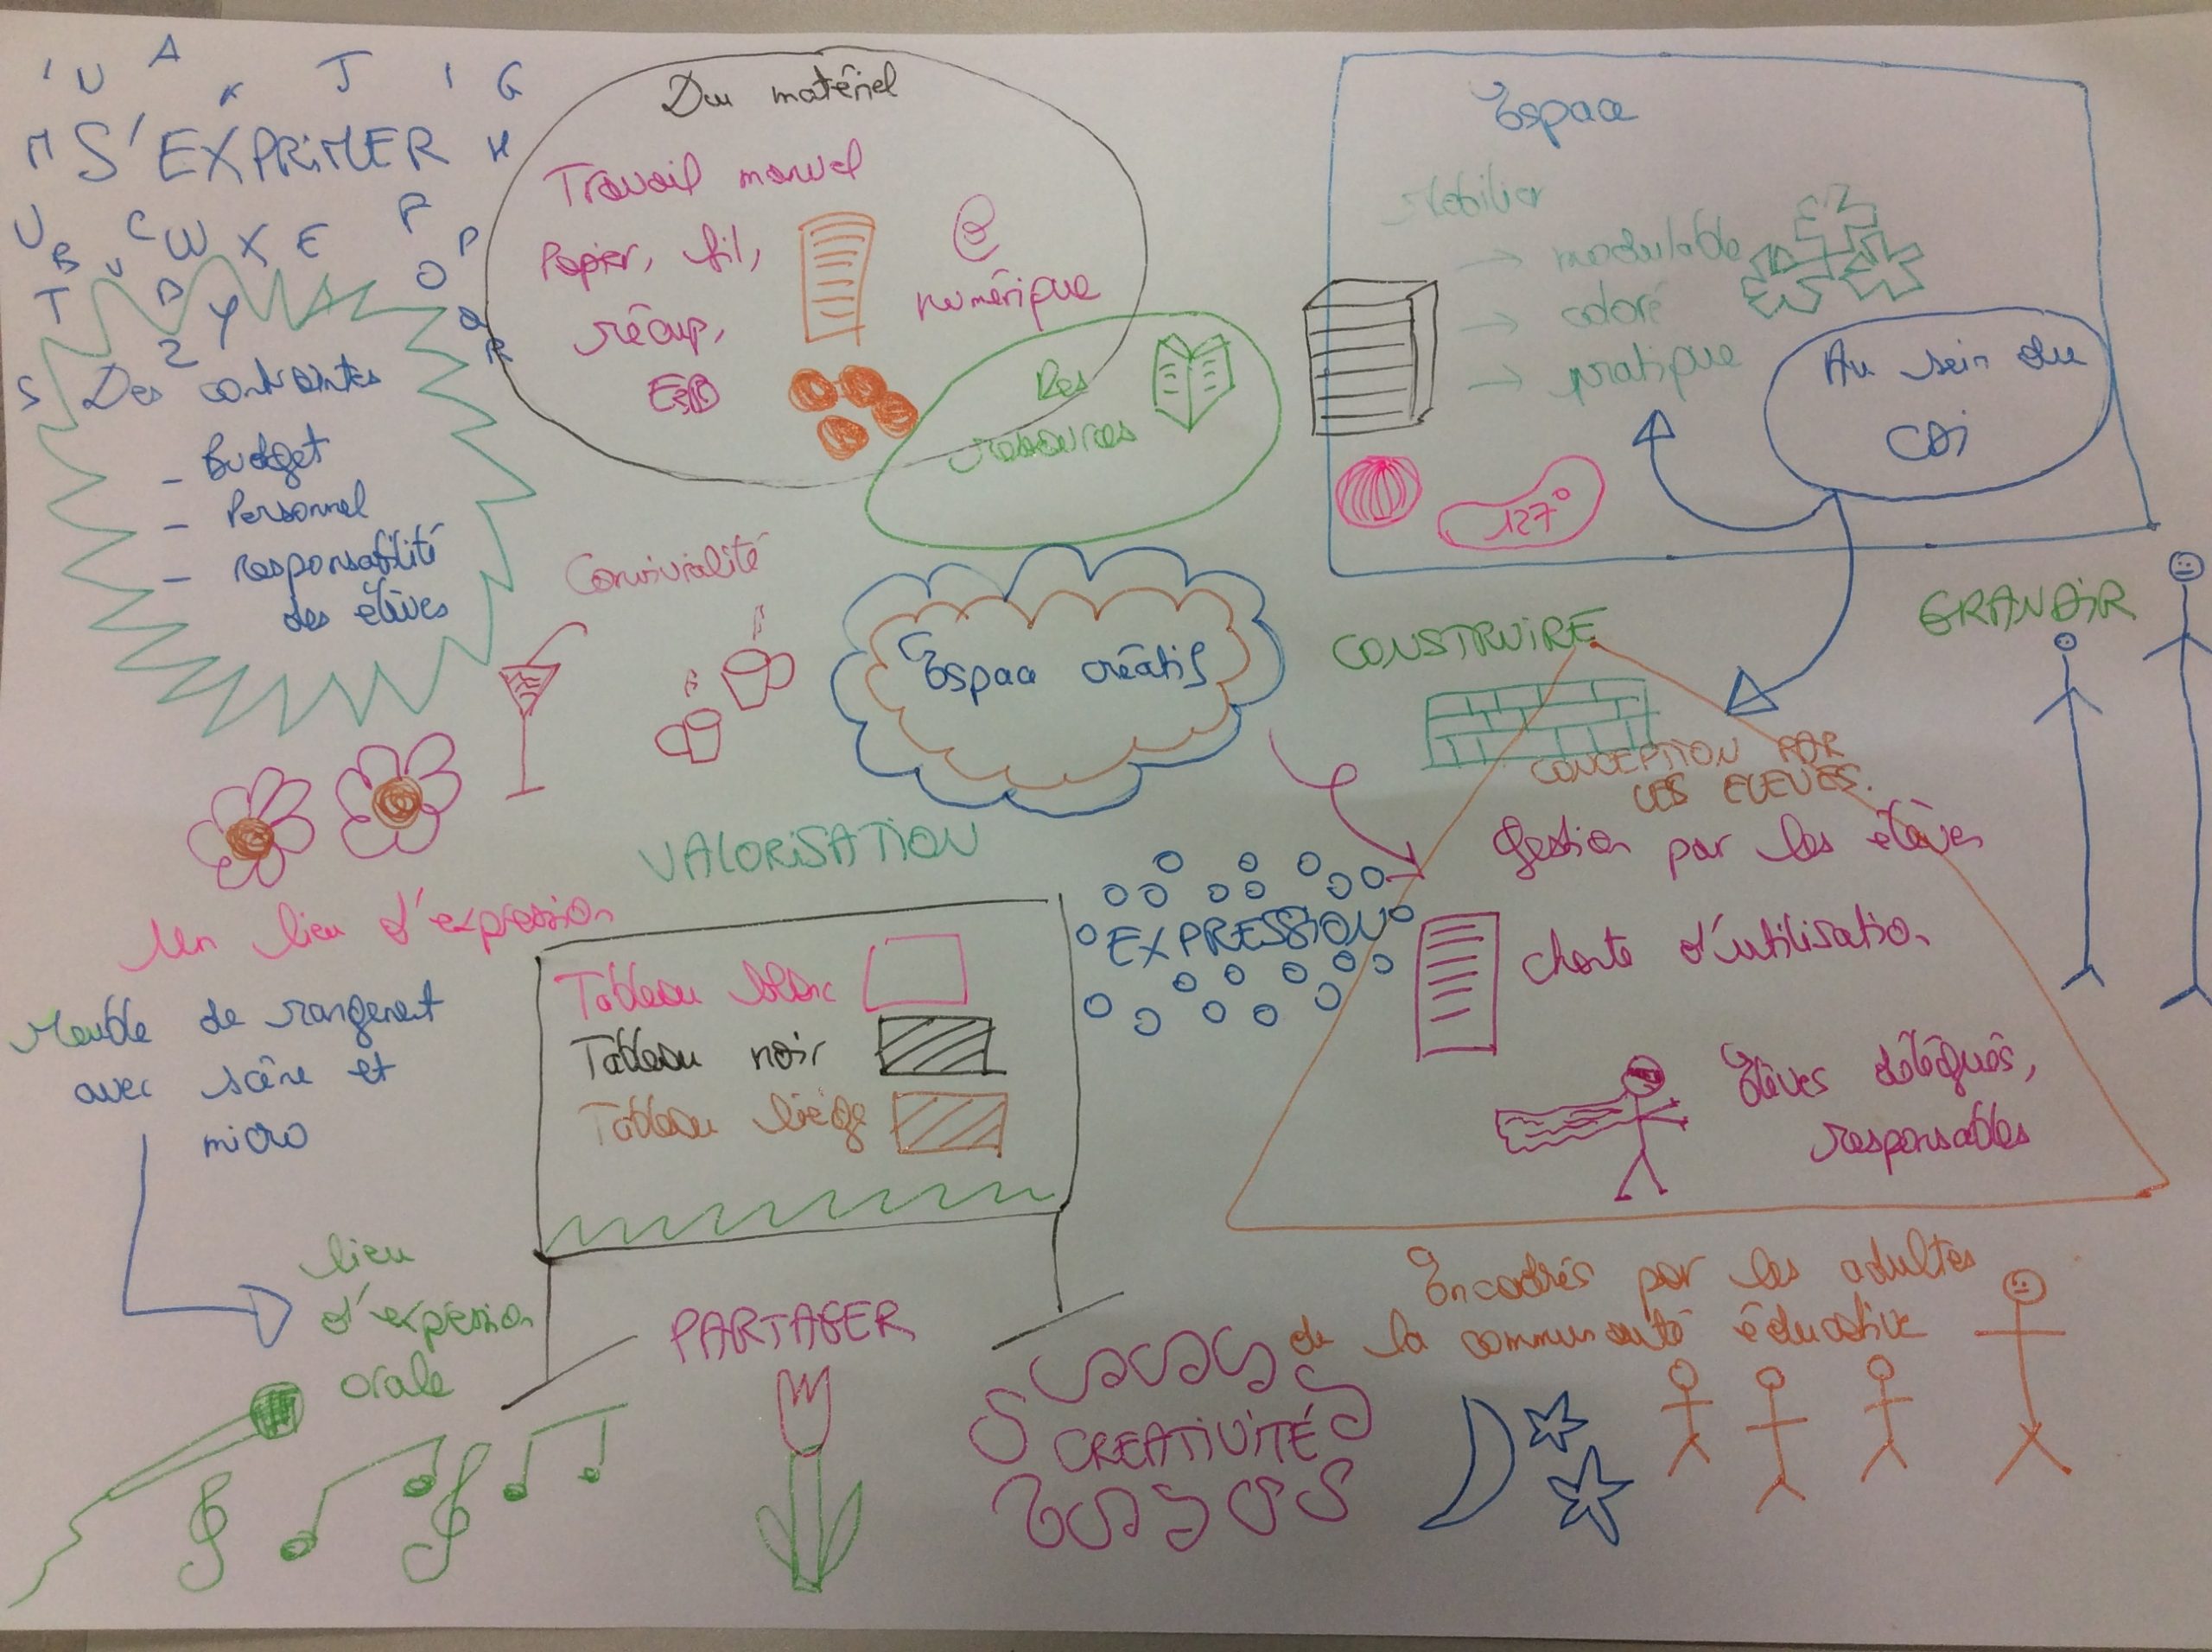 S'EXPRIMER
Des contraintes
- Budget
- Personnel
- responsabilité
des élèves
Du matériel
Travail manuel
Papier, fil,
récup,
numérique
Des
ressources
Espace
Mobilier
→ modulable
→ coloré
→ pratique
127°
Au sein du
CDI
Convivialité
Espace créatif
CONSTRUIRE
GRANDIR
CONCEPTION PAR
LES ELEVES.
Gestion par les élèves
charte d'utilisation
Elèves délégués,
responsables
VALORISATION
EXPRESSION
Un lieu d'expression
Meuble de rangement
avec scène et
micro
Tableau blanc
Tableau noir
Tableau liège
lieu
d'expression
orale
PARTAGER
CREATIVITÉ
Encadrés par les adultes
de la communauté éducative